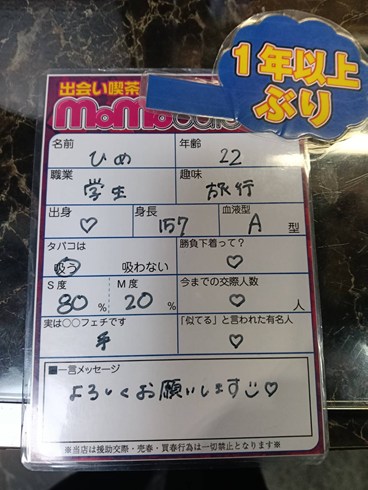 1年以上
ぶり
出会い喫茶
MoMocafe
名前 ひめ 年齢 22
職業 学生 趣味 旅行
出身 ♡ 身長 157 血液型 A 型
タバコは 吸う 吸わない 勝負下着って? ♡
S度 80% M度 20% 今までの交際人数 ♡ 人
実は○○フェチです 手 「似てる」と言われた有名人 ♡
■一言メッセージ
よろしくお願いします☺♡
※当店は援助交際・売春・買春行為は一切禁止となります※